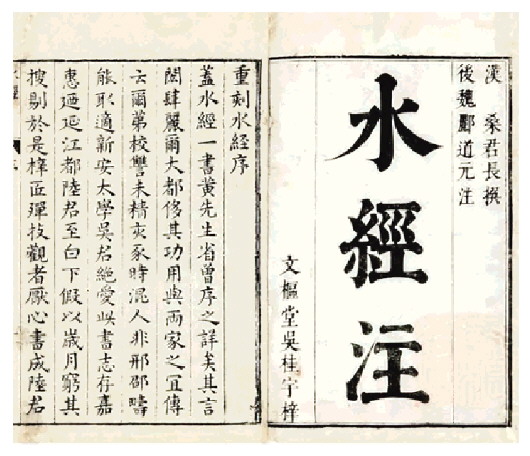 漢 桑君長撰
後魏酈道元注
水經注
文樞堂吳桂宇梓
重刻水経序
蓋水經一書黃先生省曾序之詳矣其言
閎肆麗爾大都侈其功用與兩家之冝傳
云爾第校讐未精亥豕時混人非邢邵疇
能取適新安太學吳君絕愛此書志存嘉
惠迺延江都陸君至白下假以歲月窮其
搜剔於是梓匠殫技觀者厭心書成陸君